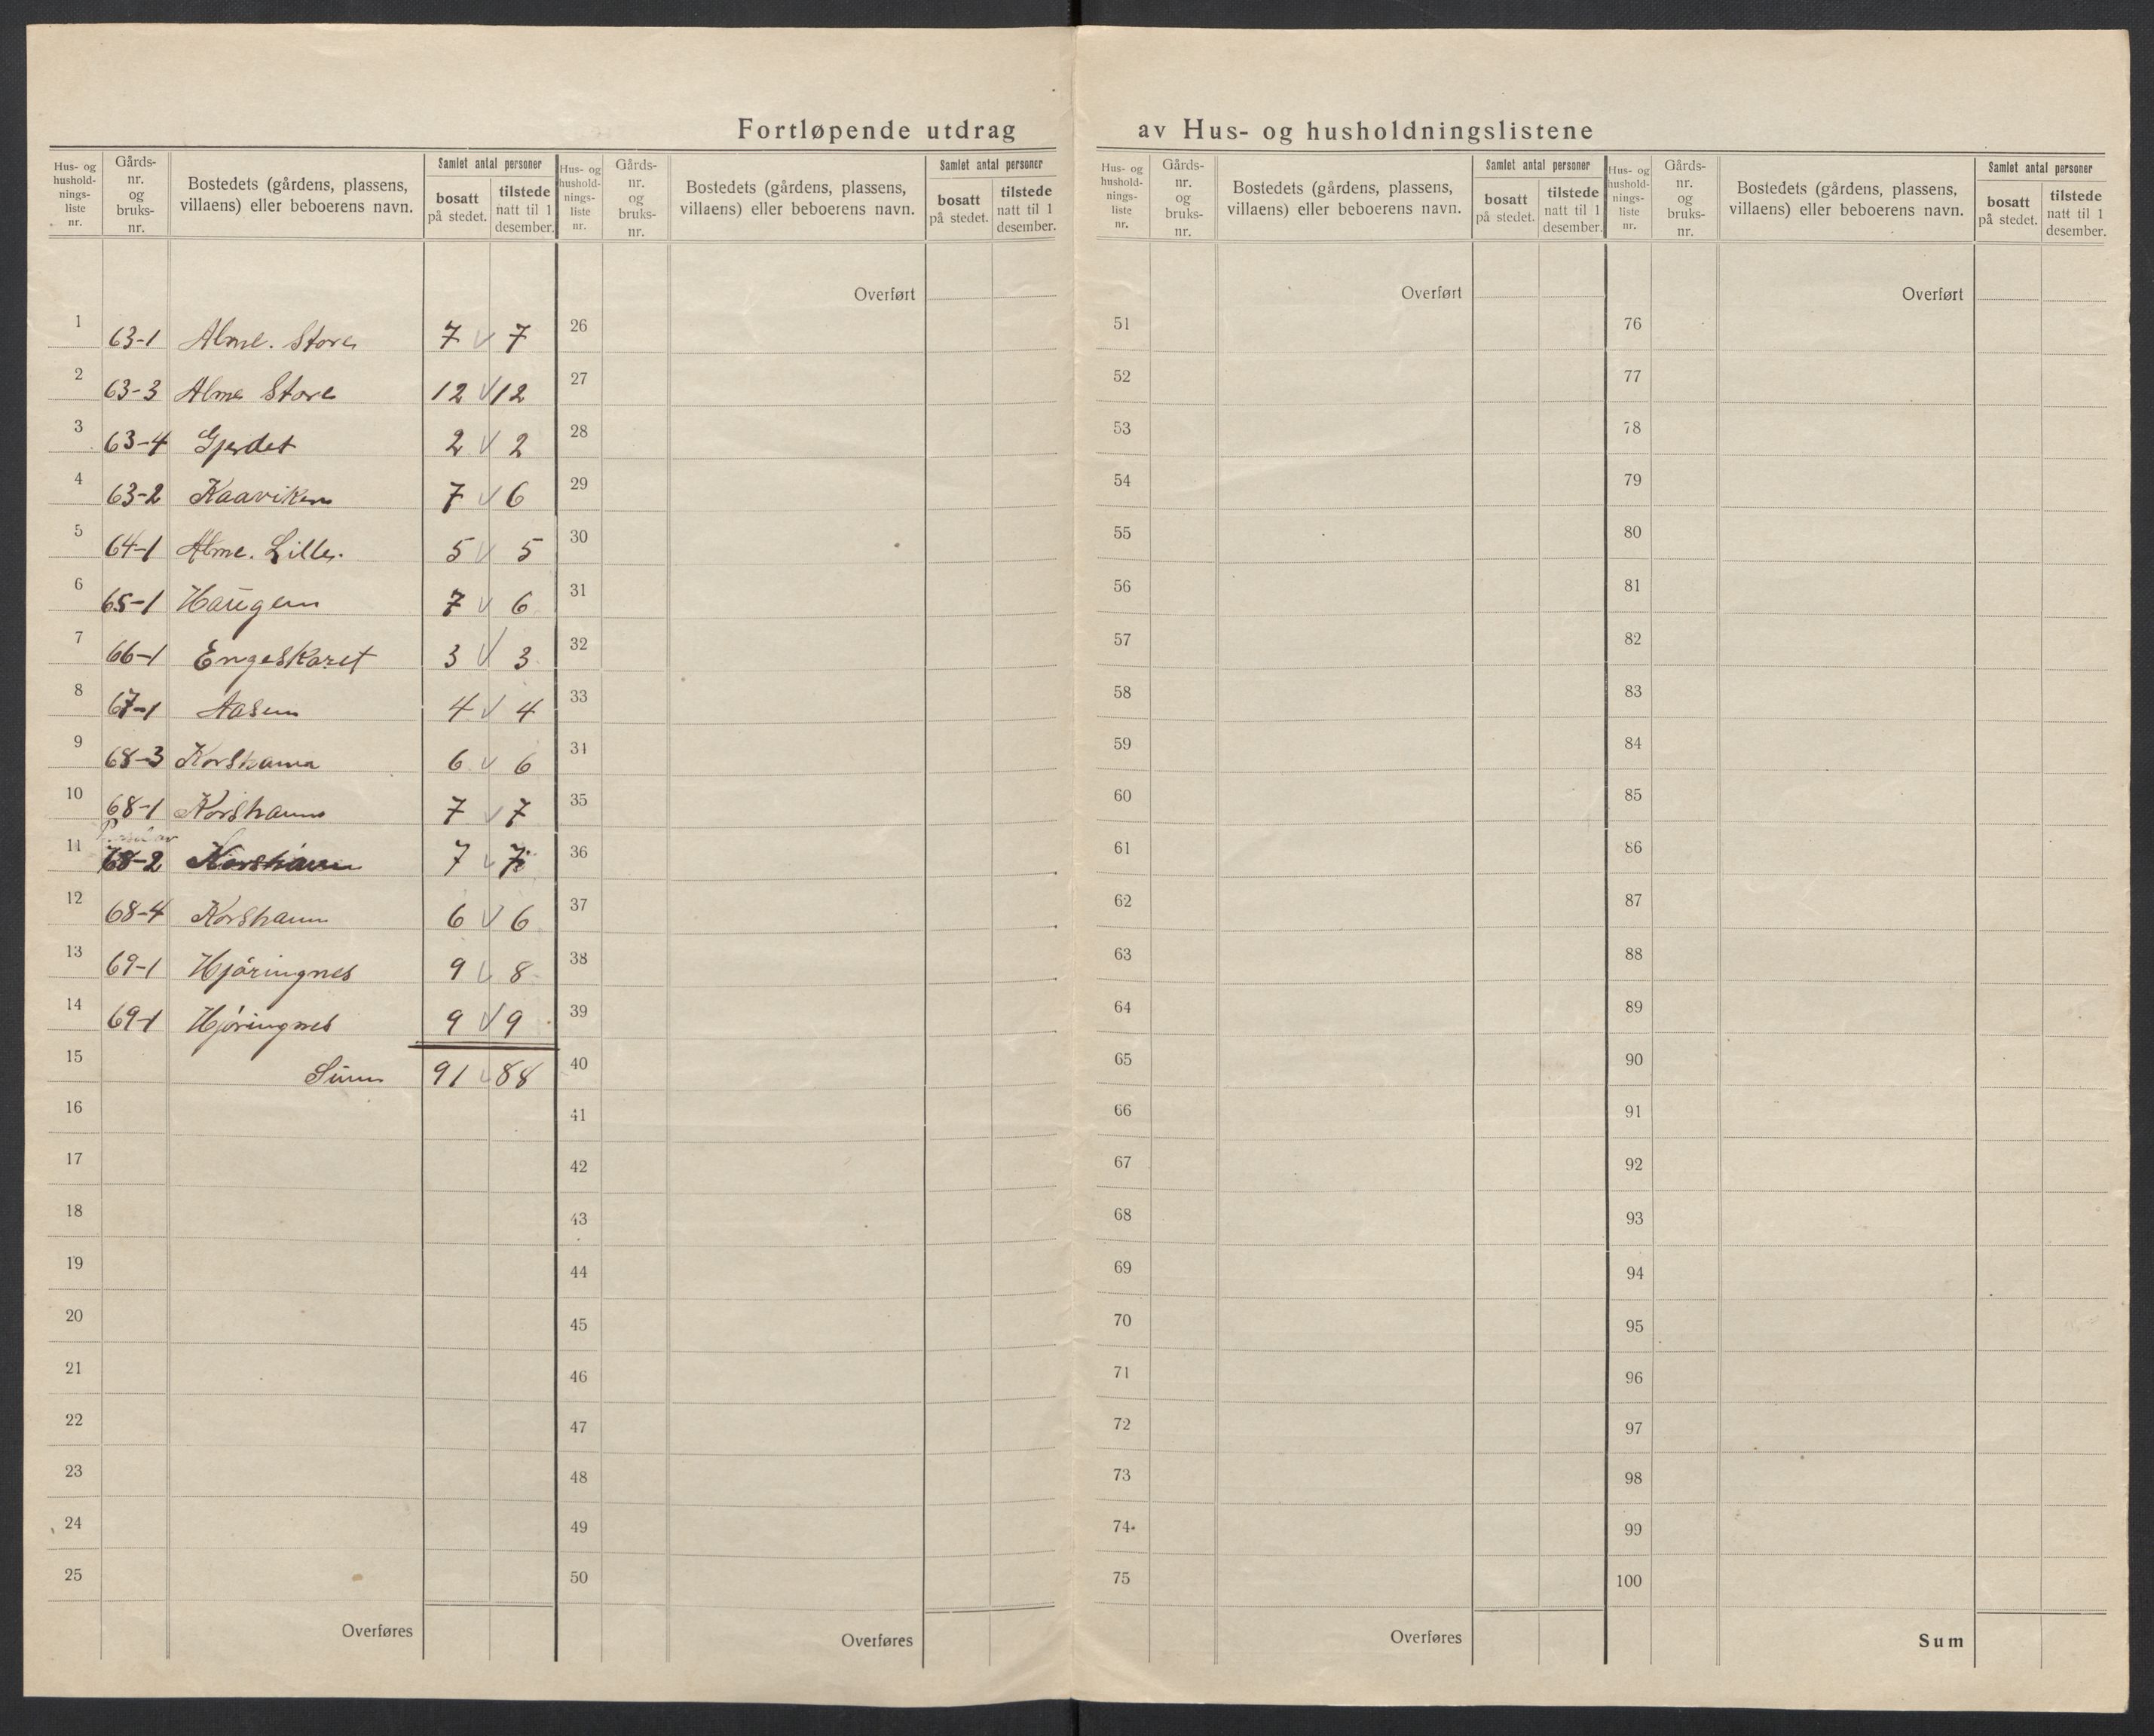 Fortløpende utdrag av Hus- og husholdningslistene
Hus- og hushold- nings- liste nr. Gårds- nr. og bruks- nr. Bostedets (gårdens, plassens, villaens) eller beboerens navn. Samlet antal personer bosatt på stedet. tilstede natt til 1 desember.
1 63-1 Alme. Store 7 v 7
2 63-3 Alme Store 12 v 12
3 63-4 Gjerdet 2 v 2
4 63-2 Kaaviken 7 v 6
5 64-1 Alme. Lille. 5 v 5
6 65-1 Haugen 7 v 6
7 66-1 Engeskaret 3 v 3
8 67-1 Aasen 4 v 4
9 68-3 Korshamn 6 v 6
10 68-1 Korshamn 7 v 7
11 68-2 Korshavn 7 v 7
12 68-4 Korshamn 6 v 6
13 69-1 Hjöringnes 9 v 8
14 69-1 Hjöringnes 9 v 9
15 Sum 91 v 88
16
17
18
19
20
21
22
23
24
25
Overføres
Hus- og hushold- nings- liste nr. Gårds- nr. og bruks- nr. Bostedets (gårdens, plassens, villaens) eller beboerens navn. Samlet antal personer bosatt på stedet. tilstede natt til 1 desember.
Overført
26
27
28
29
30
31
32
33
34
35
36
37
38
39
40
41
42
43
44
45
46
47
48
49
50
Overføres
Hus- og hushold- nings- liste nr. Gårds- nr. og bruks- nr. Bostedets (gårdens, plassens, villaens) eller beboerens navn. Samlet antal personer bosatt på stedet. tilstede natt til 1 desember.
Overført
51
52
53
54
55
56
57
58
59
60
61
62
63
64
65
66
67
68
69
70
71
72
73
74
75
Overføres
Hus- og hushold- nings- liste nr. Gårds- nr. og bruks- nr. Bostedets (gårdens, plassens, villaens) eller beboerens navn. Samlet antal personer bosatt på stedet. tilstede natt til 1 desember.
Overført
76
77
78
79
80
81
82
83
84
85
86
87
88
89
90
91
92
93
94
95
96
97
98
99
100
Sum